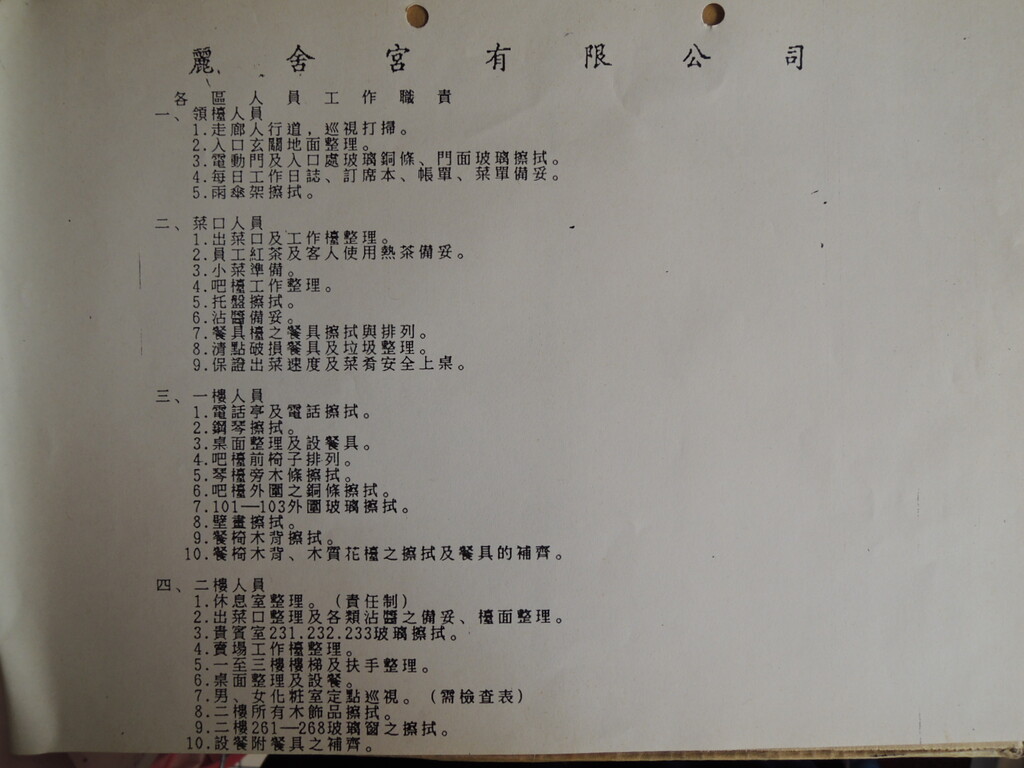 麗舍宮有限公司
各區人員工作職責
一、領檯人員
1.走廊人行道，巡視打掃。
2.入口玄關地面整理。
3.電動門及入口處玻璃銅條、門面玻璃擦拭。
4.每日工作日誌、訂席本、帳單、菜單備妥。
5.雨傘架擦拭。
二、菜口人員
1.出菜口及工作檯整理。
2.員工紅茶及客人使用熱茶備妥。
3.小菜準備。
4.吧檯工作整理。
5.托盤擦拭。
6.沾醬備妥。
7.餐具檯之餐具擦拭與排列。
8.清點破損餐具及垃圾整理。
9.保證出菜速度及菜肴安全上桌。
三、一樓人員
1.電話亭及電話擦拭。
2.鋼琴擦拭。
3.桌面整理及設餐具。
4.吧檯前椅子排列。
5.琴檯旁木條擦拭。
6.吧檯外圍之銅條擦拭。
7.101—103外圍玻璃擦拭。
8.壁畫擦拭。
9.餐椅木背擦拭。
10.餐椅木背、木質花檯之擦拭及餐具的補齊。
四、二樓人員
1.休息室整理。(責任制)
2.出菜口整理及各類沾醬之備妥、檯面整理。
3.貴賓室231.232.233玻璃擦拭。
4.賣場工作檯整理。
5.一至三樓樓梯及扶手整理。
6.桌面整理及設餐。
7.男、女化粧室定點巡視。(需檢查表)
8.二樓所有木飾品擦拭。
9.二樓261—268玻璃窗之擦拭。
10.設餐附餐具之補齊。